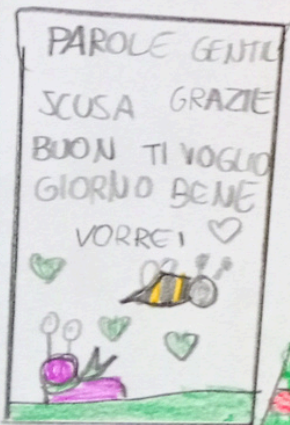 PAROLE GENTILI
SCUSA GRAZIE
BUON TI VOGLIO
GIORNO BENE
VORREI